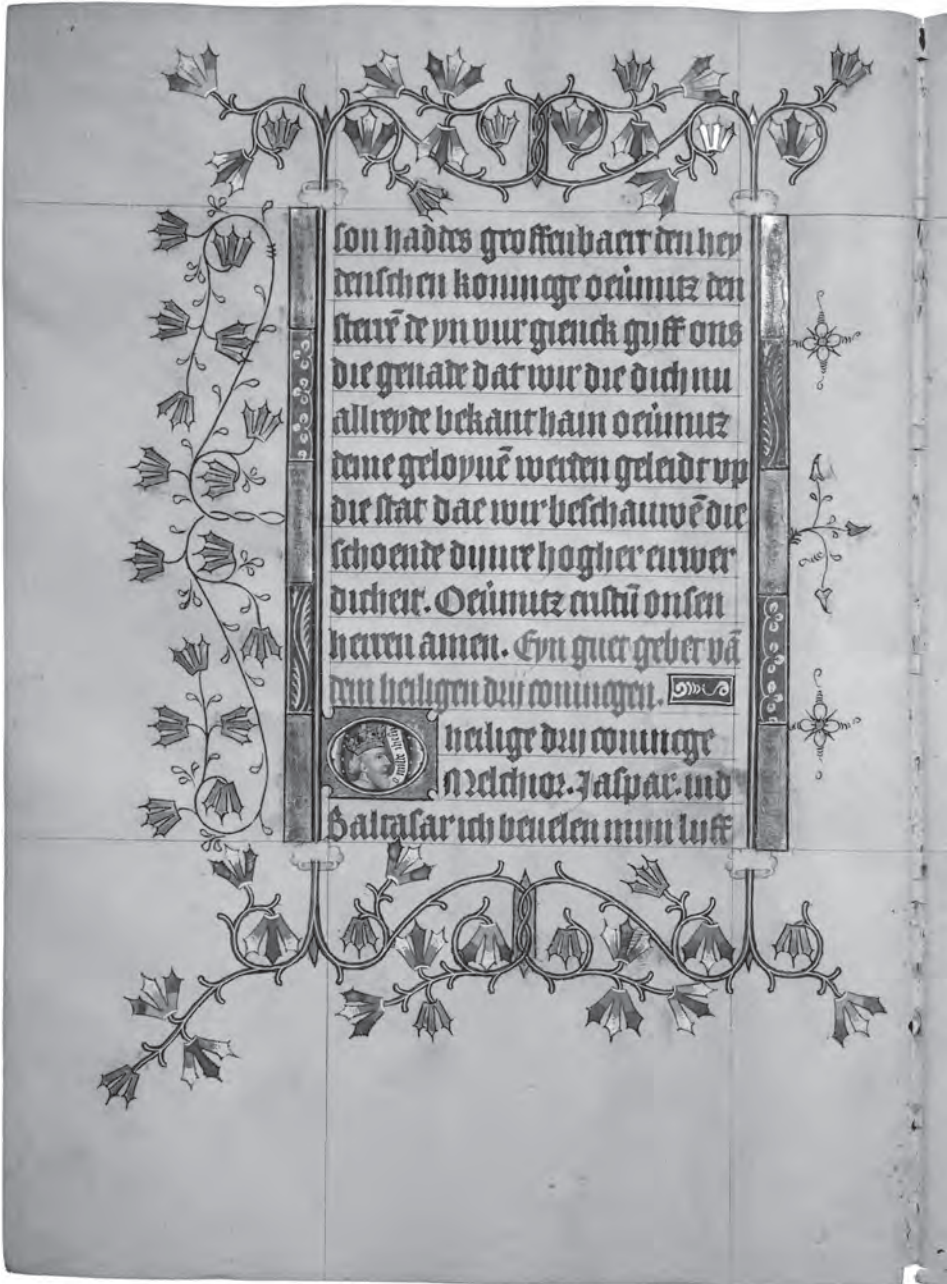 son haddes groffenbaert den hey
denschen konincge oeuimitz den
sterrē de yn vur gienck gyff ons
die genade dat wir die dich nu
allreyde bekant hain oeuimitz
deme geloyuē werden geleidt vp
die stat dae wir beschauwē die
schoende dynre hogher eirwer
dicheit. Oeuimitz cristū onsen
herren amen. Eyn guet gebet vā
dem heiligen dry conincgen.
heilige dry conincge
Melchior. Jaspar. ind
Baltasar ich beuelen mijn lijff